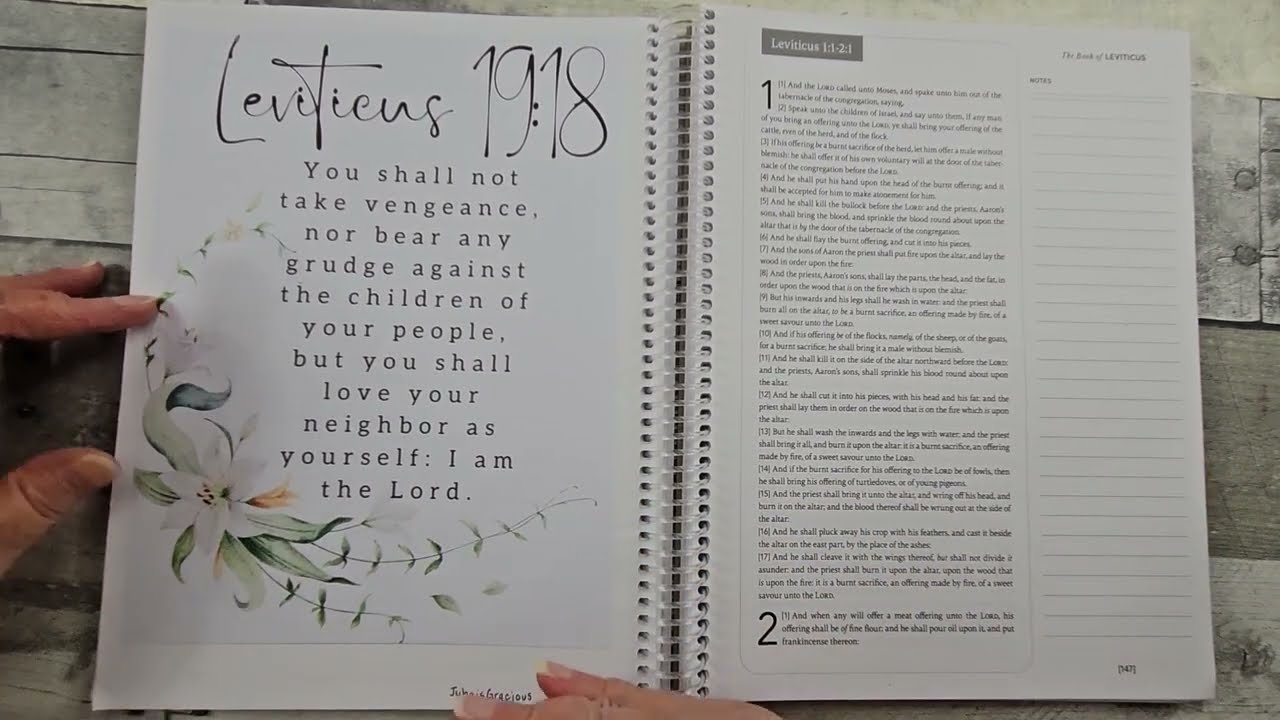 Leviticus 19:18
You shall not
take vengeance,
nor bear any
grudge against
the children of
your people,
but you shall
love your
neighbor as
yourself: I am
the Lord.
Leviticus 1:1-2:1
The Book of LEVITICUS
NOTES
1 [1] And the LORD called unto Moses, and spake unto him out of the
tabernacle of the congregation, saying,
[2] Speak unto the children of Israel, and say unto them, If any man
of you bring an offering unto the LORD, ye shall bring your offering of the
cattle, even of the herd, and of the flock.
[3] If his offering be a burnt sacrifice of the herd, let him offer a male without
blemish: he shall offer it of his own voluntary will at the door of the taber-
nacle of the congregation before the LORD.
[4] And he shall put his hand upon the head of the burnt offering; and it
shall be accepted for him to make atonement for him.
[5] And he shall kill the bullock before the LORD: and the priests, Aaron's
sons, shall bring the blood, and sprinkle the blood round about upon the
altar that is by the door of the tabernacle of the congregation.
[6] And he shall flay the burnt offering, and cut it into his pieces.
[7] And the sons of Aaron the priest shall put fire upon the altar, and lay the
wood in order upon the fire:
[8] And the priests, Aaron's sons, shall lay the parts, the head, and the fat, in
order upon the wood that is on the fire which is upon the altar:
[9] But his inwards and his legs shall he wash in water: and the priest shall
burn all on the altar, to be a burnt sacrifice, an offering made by fire, of a
sweet savour unto the LORD.
[10] And if his offering be of the flocks, namely, of the sheep, or of the goats,
for a burnt sacrifice; he shall bring it a male without blemish.
[11] And he shall kill it on the side of the altar northward before the LORD:
and the priests, Aaron's sons, shall sprinkle his blood round about upon
the altar:
[12] And he shall cut it into his pieces, with his head and his fat: and the
priest shall lay them in order on the wood that is on the fire which is upon
the altar:
[13] But he shall wash the inwards and the legs with water: and the priest
shall bring it all, and burn it upon the altar: it is a burnt sacrifice, an offering
made by fire, of a sweet savour unto the LORD.
[14] And if the burnt sacrifice for his offering to the LORD be of fowls, then
he shall bring his offering of turtledoves, or of young pigeons.
[15] And the priest shall bring it unto the altar, and wring off his head, and
burn it on the altar; and the blood thereof shall be wrung out at the side of
the altar:
[16] And he shall pluck away his crop with his feathers, and cast it beside
the altar on the east part, by the place of the ashes:
[17] And he shall cleave it with the wings thereof, but shall not divide it
asunder: and the priest shall burn it upon the altar, upon the wood that
is upon the fire: it is a burnt sacrifice, an offering made by fire, of a sweet
savour unto the LORD.
2 [1] And when any will offer a meat offering unto the LORD, his
offering shall be of fine flour; and he shall pour oil upon it, and put
frankincense thereon:
[147]